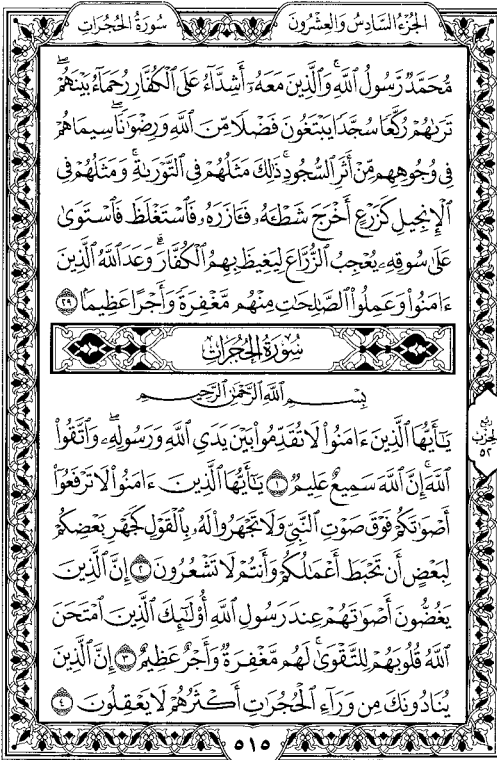 الجُزْءُ السَّادِسُ وَالعِشْرُونَ
سُورَةُ الحُجُرَاتِ
مُّحَمَّدٌ رَّسُولُ ٱللَّهِ ۚ وَٱلَّذِينَ مَعَهُۥٓ أَشِدَّآءُ عَلَى ٱلْكُفَّارِ رُحَمَآءُ بَيْنَهُمْ ۖ
تَرَىٰهُمْ رُكَّعًا سُجَّدًا يَبْتَغُونَ فَضْلًا مِّنَ ٱللَّهِ وَرِضْوَٰنًا ۖ سِيمَاهُمْ
فِى وُجُوهِهِم مِّنْ أَثَرِ ٱلسُّجُودِ ۚ ذَٰلِكَ مَثَلُهُمْ فِى ٱلتَّوْرَىٰةِ ۚ وَمَثَلُهُمْ فِى
ٱلْإِنجِيلِ كَزَرْعٍ أَخْرَجَ شَطْـَٔهُۥ فَـَٔازَرَهُۥ فَٱسْتَغْلَظَ فَٱسْتَوَىٰ
عَلَىٰ سُوقِهِۦ يُعْجِبُ ٱلزُّرَّاعَ لِيَغِيظَ بِهِمُ ٱلْكُفَّارَ ۗ وَعَدَ ٱللَّهُ ٱلَّذِينَ
ءَامَنُوا۟ وَعَمِلُوا۟ ٱلصَّٰلِحَٰتِ مِنْهُم مَّغْفِرَةً وَأَجْرًا عَظِيمًۢا ٢٩
سُورَةُ الحُجُرَاتِ
بِسْمِ ٱللَّهِ ٱلرَّحْمَٰنِ ٱلرَّحِيمِ
يَٰٓأَيُّهَا ٱلَّذِينَ ءَامَنُوا۟ لَا تُقَدِّمُوا۟ بَيْنَ يَدَىِ ٱللَّهِ وَرَسُولِهِۦ ۖ وَٱتَّقُوا۟
ٱللَّهَ ۚ إِنَّ ٱللَّهَ سَمِيعٌ عَلِيمٌ ١ يَٰٓأَيُّهَا ٱلَّذِينَ ءَامَنُوا۟ لَا تَرْفَعُوٓا۟
أَصْوَٰتَكُمْ فَوْقَ صَوْتِ ٱلنَّبِىِّ وَلَا تَجْهَرُوا۟ لَهُۥ بِٱلْقَوْلِ كَجَهْرِ بَعْضِكُمْ
لِبَعْضٍ أَن تَحْبَطَ أَعْمَٰلُكُمْ وَأَنتُمْ لَا تَشْعُرُونَ ٢ إِنَّ ٱلَّذِينَ
يَغُضُّونَ أَصْوَٰتَهُمْ عِندَ رَسُولِ ٱللَّهِ أُو۟لَٰٓئِكَ ٱلَّذِينَ ٱمْتَحَنَ
ٱللَّهُ قُلُوبَهُمْ لِلتَّقْوَىٰ ۚ لَهُم مَّغْفِرَةٌ وَأَجْرٌ عَظِيمٌ ٣ إِنَّ ٱلَّذِينَ
يُنَادُونَكَ مِن وَرَآءِ ٱلْحُجُرَٰتِ أَكْثَرُهُمْ لَا يَعْقِلُونَ ٤
ربع
الحزب
٥٢
٥١٥